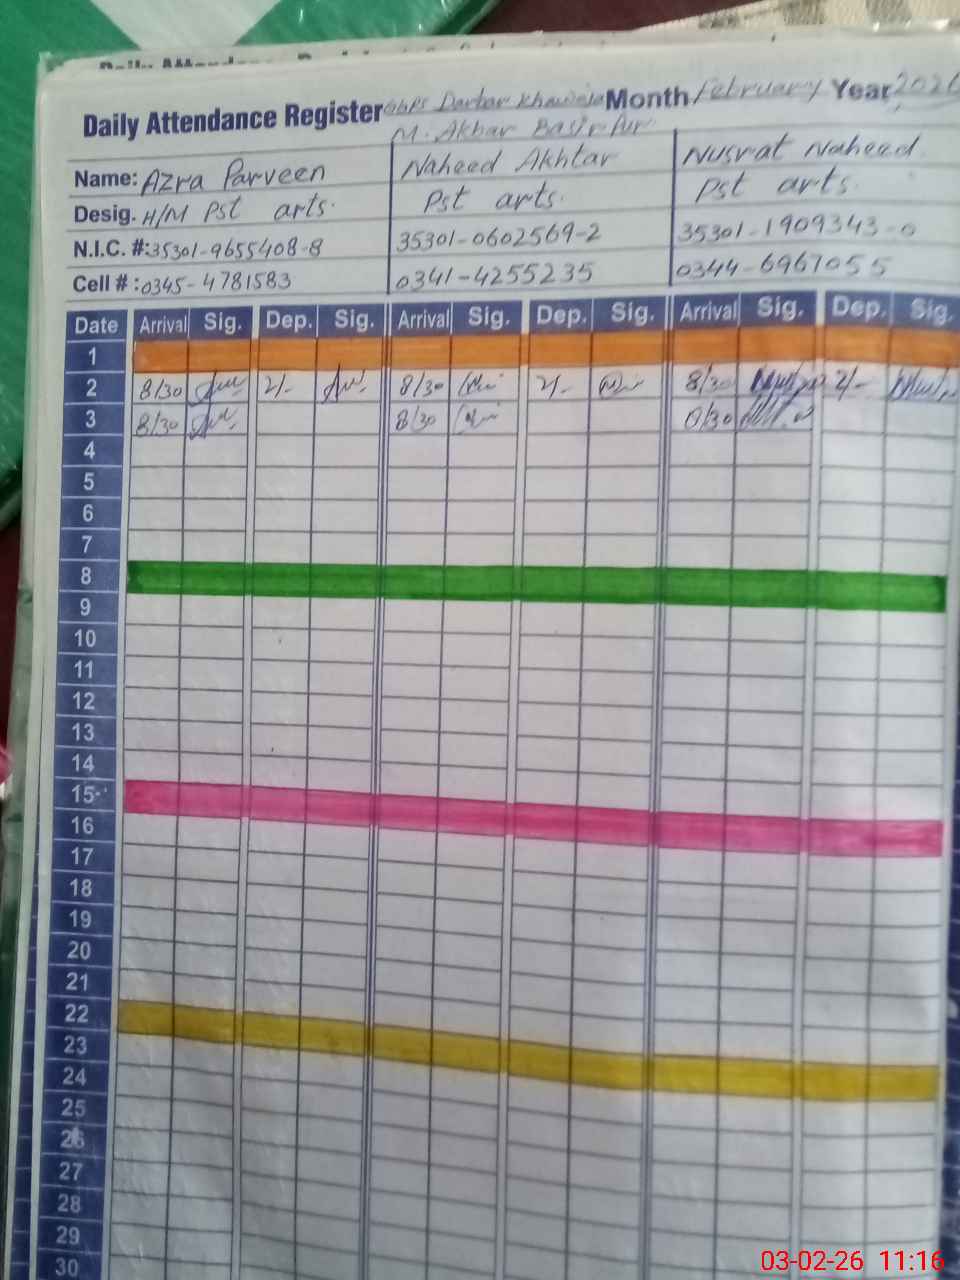 Daily Attendance Register GGPS Darbar Khawaja Month February Year 2026
M. Akbar Basirpur
Name: Azra Parveen Naheed Akhtar Nusrat Naheed.
Desig. H/M Pst arts. Pst arts. Pst arts.
N.I.C. #:35301-9655408-8 35301-0602569-2 35301-1909343-0
Cell # :0345-4781583 0341-4255235 0344-6967055
Date Arrival Sig. Dep. Sig. Arrival Sig. Dep. Sig. Arrival Sig. Dep. Sig.
1
2 8/30 2/- 8/30 2/- 8/30 2/-
3 8/30 8/30 8/30
4
5
6
7
8
9
10
11
12
13
14
15
16
17
18
19
20
21
22
23
24
25
26
27
28
29
30
03-02-26 11:16